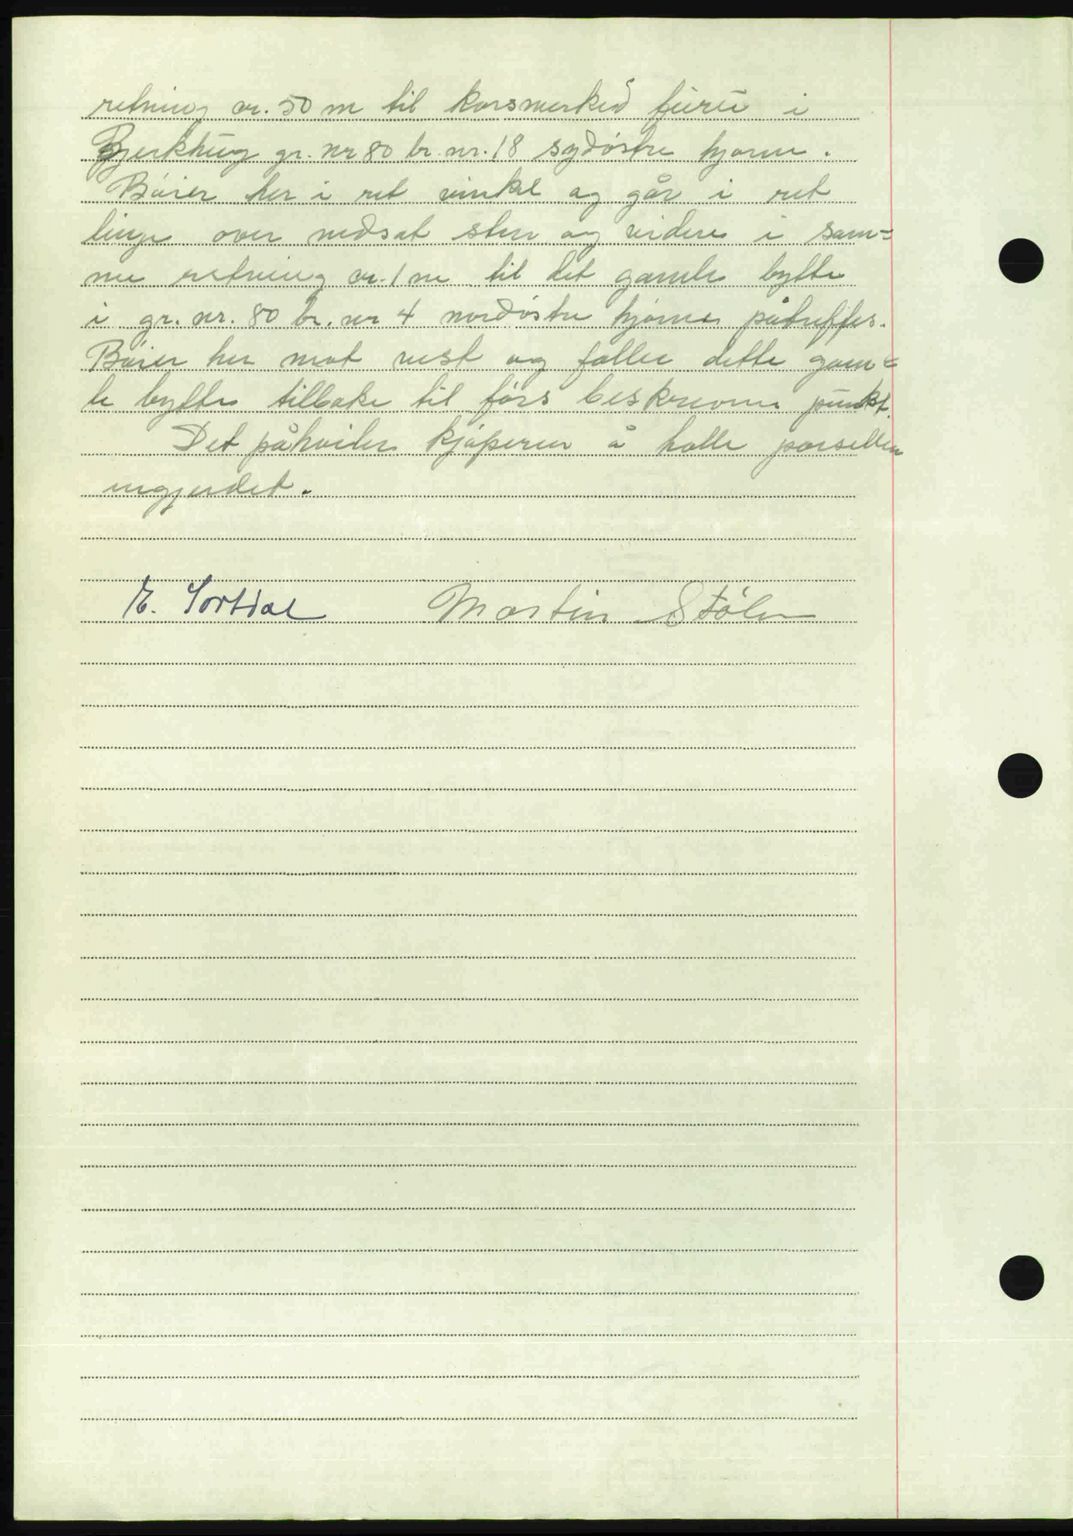 retning ca. 50 m til korsmerked furu i
Bjerkhug gr. nr 80 br. nr. 18 sydöstre hjörne.
Böier her i ret vinkel og går i ret
linje over nedsat sten og videre i sam=
me retning ca. 1 m til det gamle bytte
i gr. nr. 80 br. nr 4 nordöstre hjörne påtreffes.
Böier her mot vest og föller dette gam=
le bytte tilbake til förs beskrevne punkt.
Det påhviler kjöperen å holle parsellen
ingjerdet.
E. Sortdal Martin Stölen